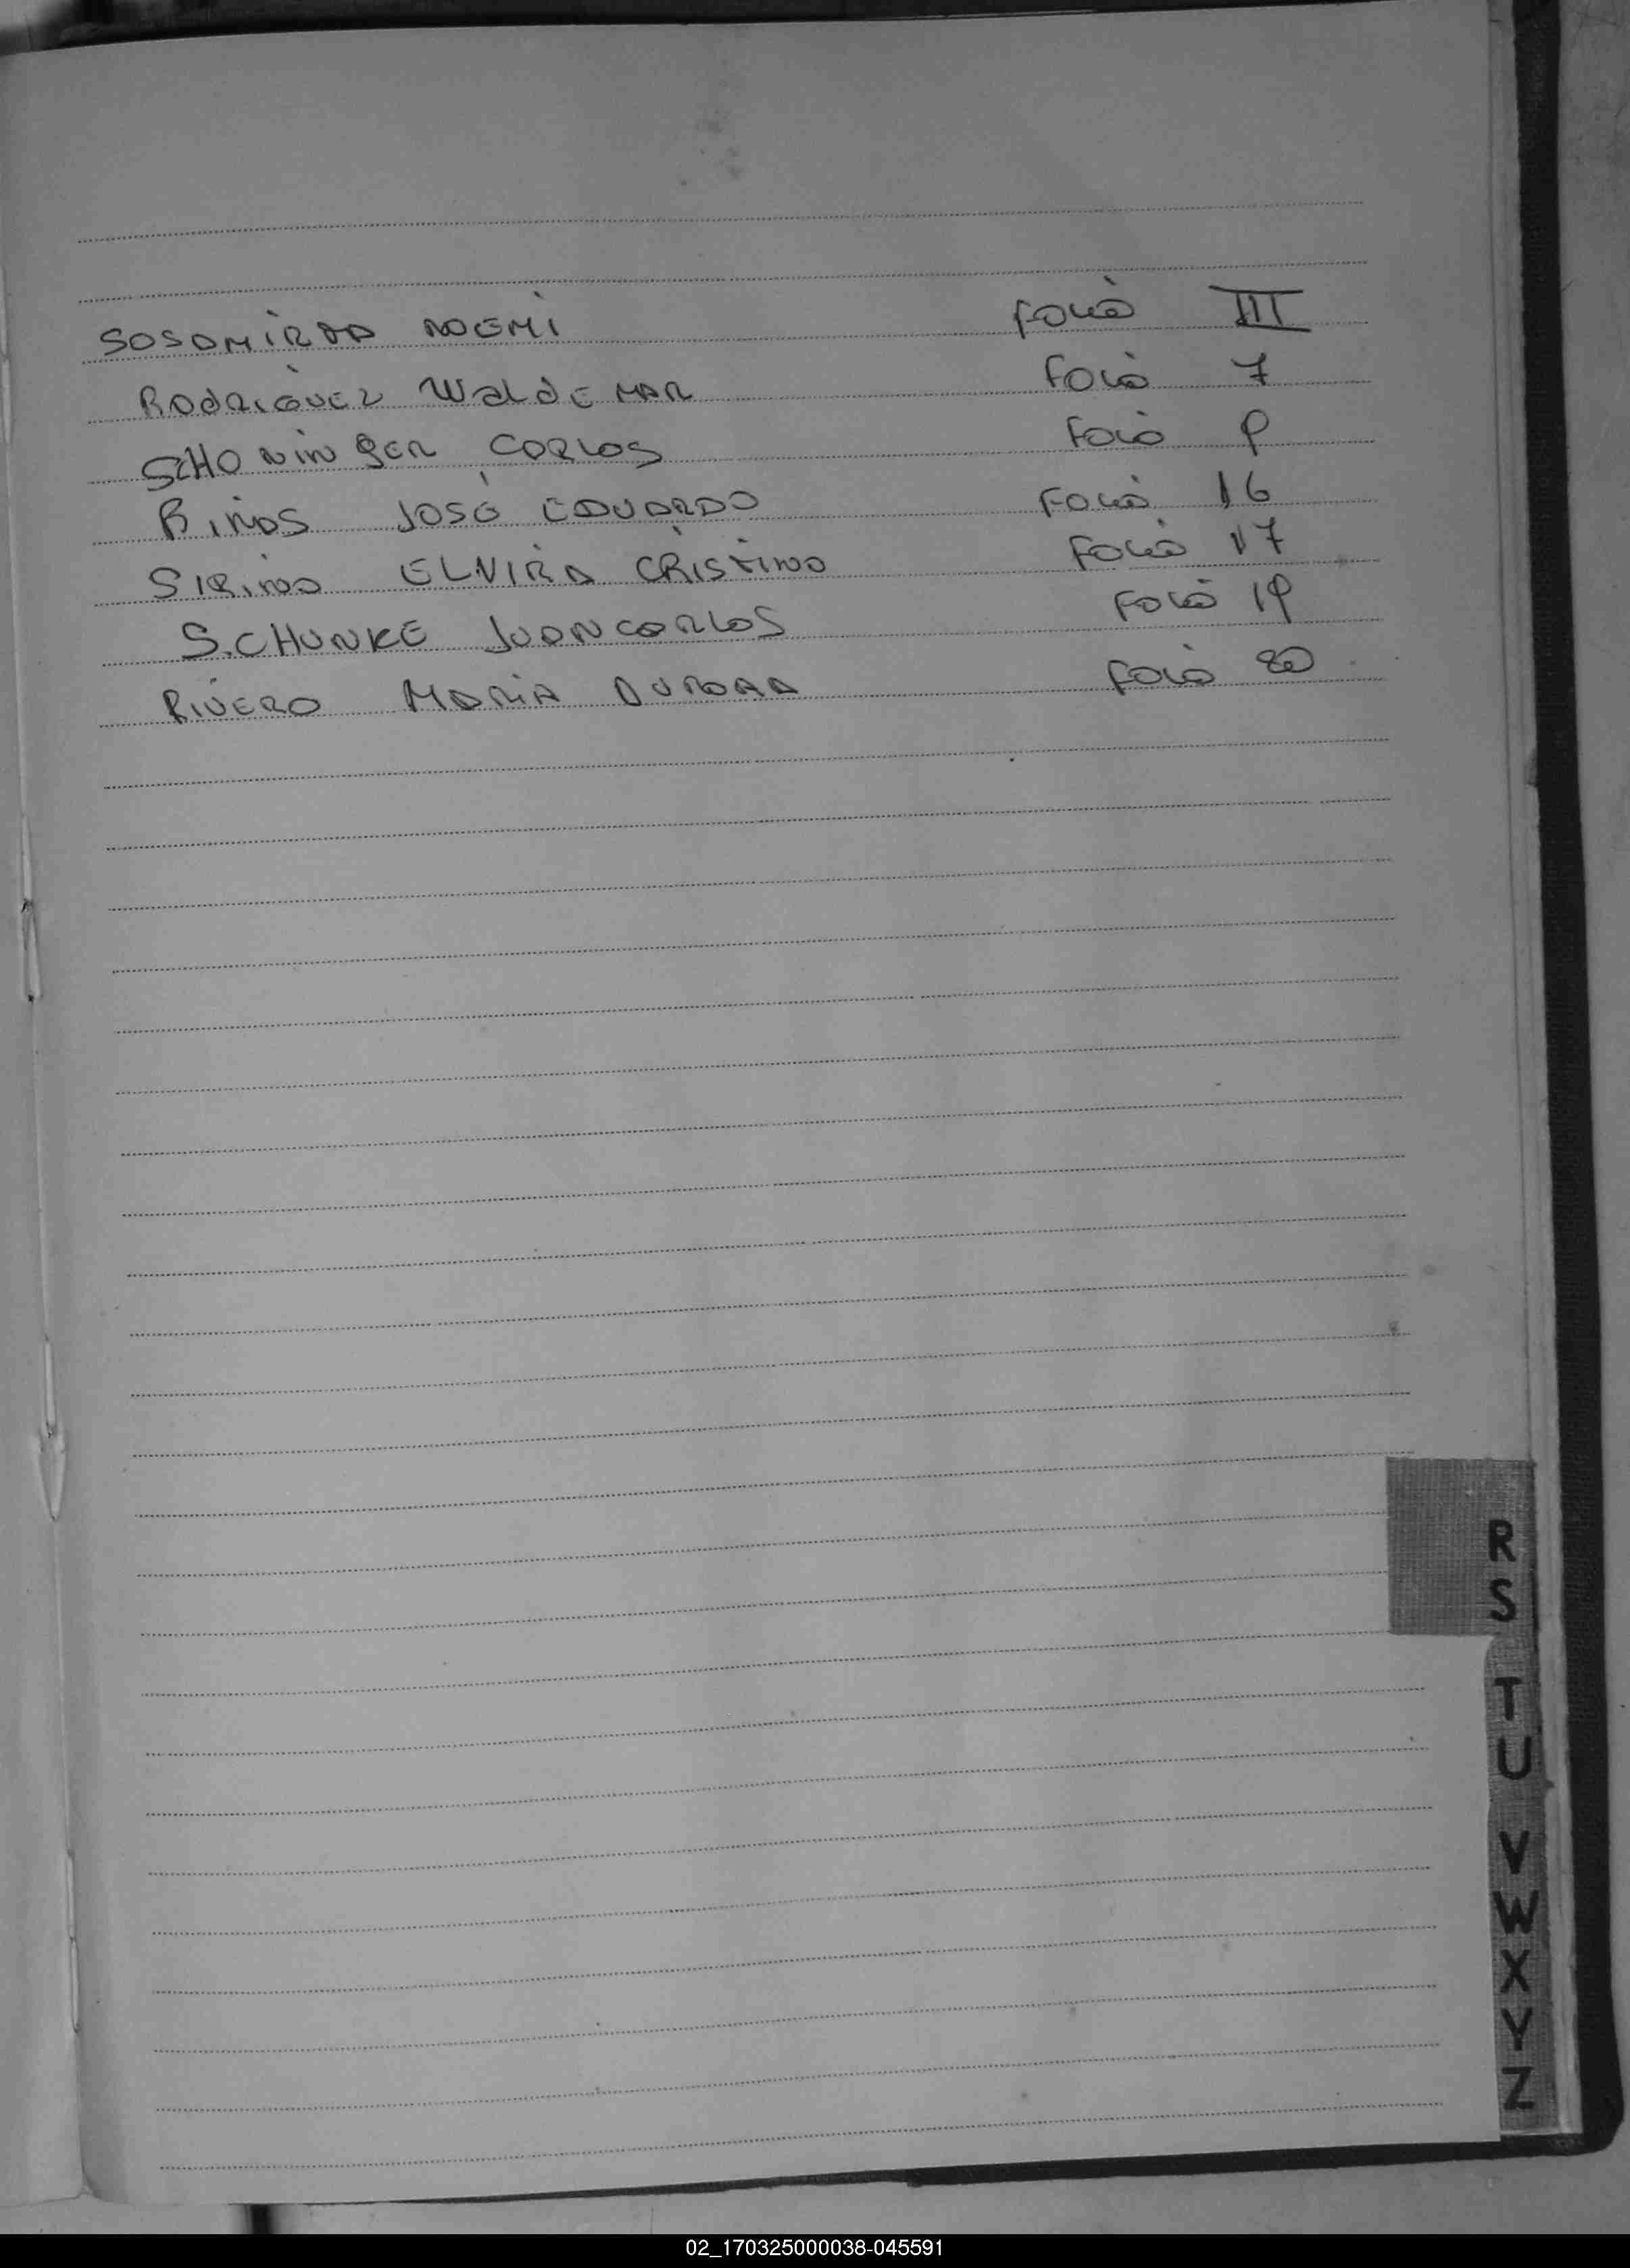 SOSAMIRAD NOEMI folio III
RODRIGUEZ WaLdEMAR folio 7
SCHONINGER CARLOS folio 9
RIÑAS JOSÉ EDUARDO folio 16
SIRINA ELVIRA CRISTINA folio 17
SCHUNKE JUAN CARLOS folio 19
RIVERO MARIA AURORA folio 20
R
S
T
U
V
W
X
Y
Z
02_170325000038-045591